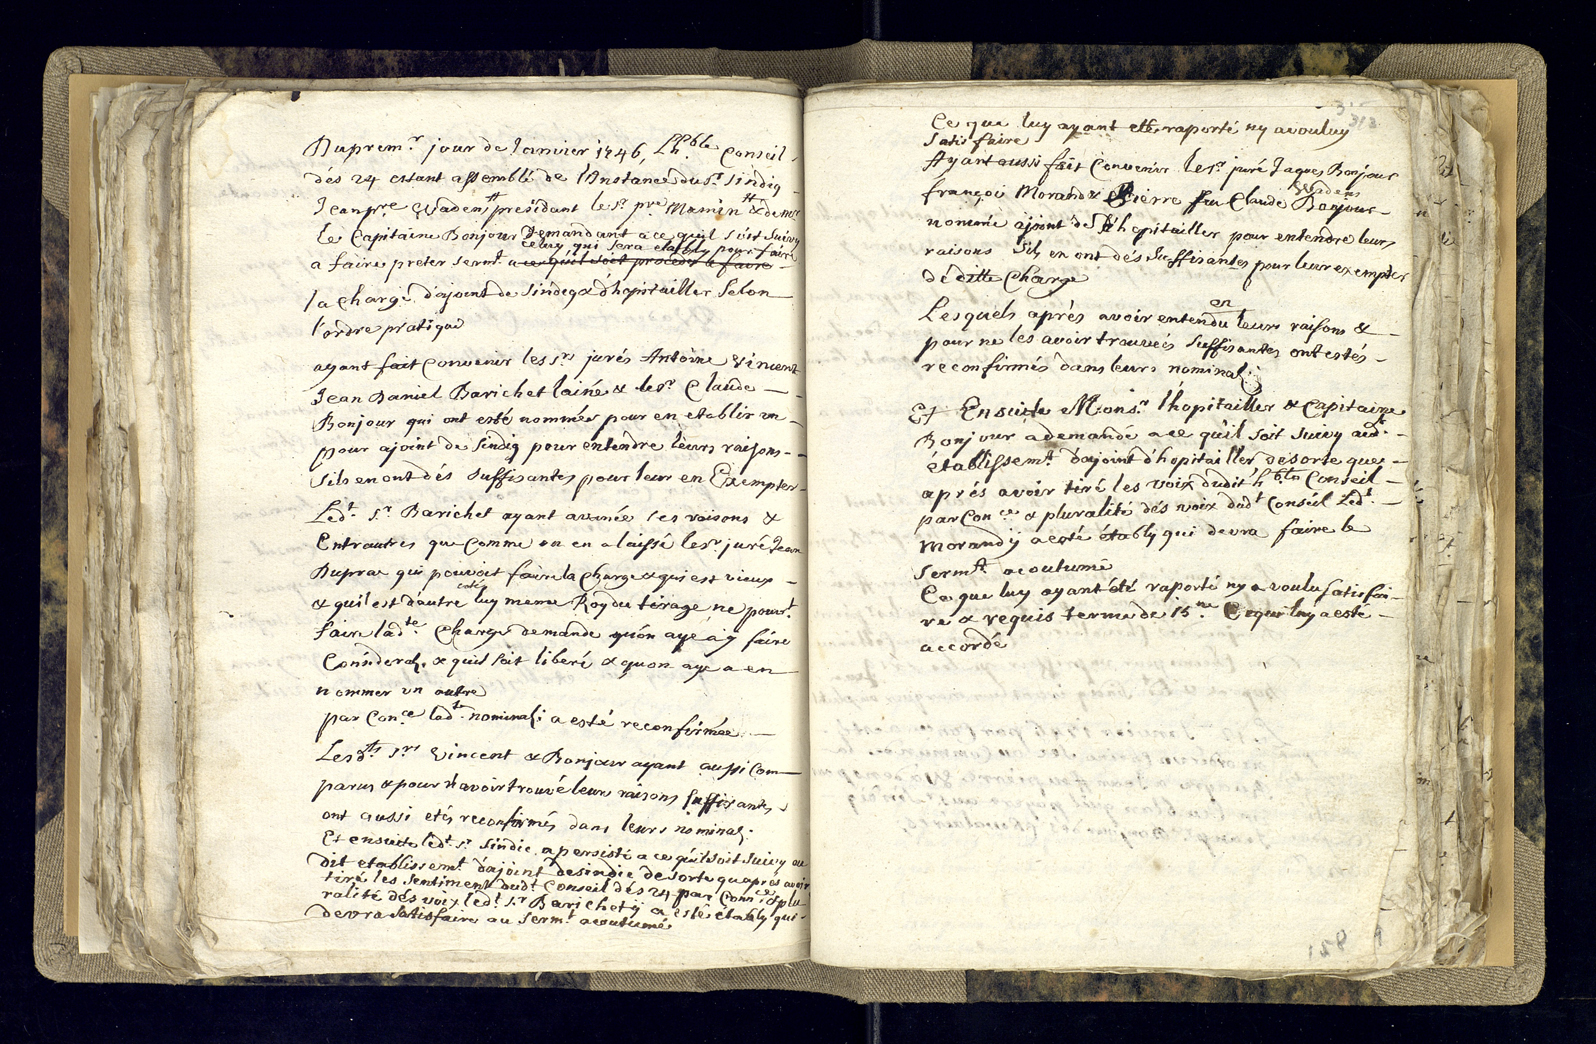 Du prem.r jour de Janvier 1746, L'h.ble Conseil
dés 24 estant assemblé de l'Instance du s.r Sindiq
Jean p.re Vvadens président le s.r p.re Mamin & de m.r
le Capitaine Bonjour Demandant a ce quil soit suivy
celuy qui sera etably pour faire
a faire preter serm.t a ce qu'il soit procéder a faire
la charge d'ajoint de Sindiq & d'hopitailler Selon
l'ordre pratiqué
ayant fait Convenir les s.rs jurés Antoine Vincent
Jean Daniel Barichet lainé & le s.r Claude
Bonjour qui ont esté nommés pour en etablir un
pour ajoint de Sindiq pour entendre leurs raisons
Sils en ont dés suffisantes pour leur en Exempter
Led.t s.r Barichet ayant avancé ses raisons &
Entrautres que comme on en a laissé le s.r juré Jean
Duprae qui pouvoit faire la charge & qui est vieux
& quil est d'autre coté luy meme Roy du tirage ne pour.t
faire lad.te Charge demande qu'on aye à y faire
Considerat. & quil soit liberé & quon aye a en
nommer un autre
par Con.ce lad.te nominat: a esté reconfirmée
Lesd.ts s.rs Vincent & Bonjour ayant aussi Com
parus & pour n'avoir trouvé leurs raisons suffisantes
ont aussi etés reconfirmés dans leurs nominat.
Et ensuite led.t s.r Sindic a persisté a ce qu'il soit suivy au
dit etablissem.t d'ajoint de sindic de sorte qu'aprés avoir
tiré les sentiment dud.t Conseil dés 24 par Con.ce & plu
ralité dés voix led.t s.r Barichet y a esté étably qui
devra satisfaire au serm.t acoutumé
313
Ce que luy ayant eté raporté ny a voulu
satisfaire
Ayant aussi fait Convenir le s.r juré Jaques Bonjour
françois Morandy & Pierre ffeu Claude Vvadens Bonjour
nommés ajoint de l'hopitailler pour entendre leurs
raisons Sils en ont dés suffisantes pour leur exempter
de ditte Charge
Lesquels aprés avoir entendu en leurs raisons &
pour ne les avoir trouvés suffisantes ont estés
reconfirmés dans leurs nominat.
Et Ensuite Mons.r l'hopitailler & Capitaine
Bonjour a demandé a ce qu'il soit suivy aud.t
établissem.t d'ajoint d'hopitailler de sorte que
aprés avoir tiré les voix dudit h.ble Conseil
par Con.ce & pluralité dés voix dud.t Conseil Led.t
Morandy a esté étably qui devra faire le
serm.t acoutumé
Ce que luy ayant été raporté ny a voulu satisfai
re & requis terme de 15.ne Ce que luy a esté
accordé